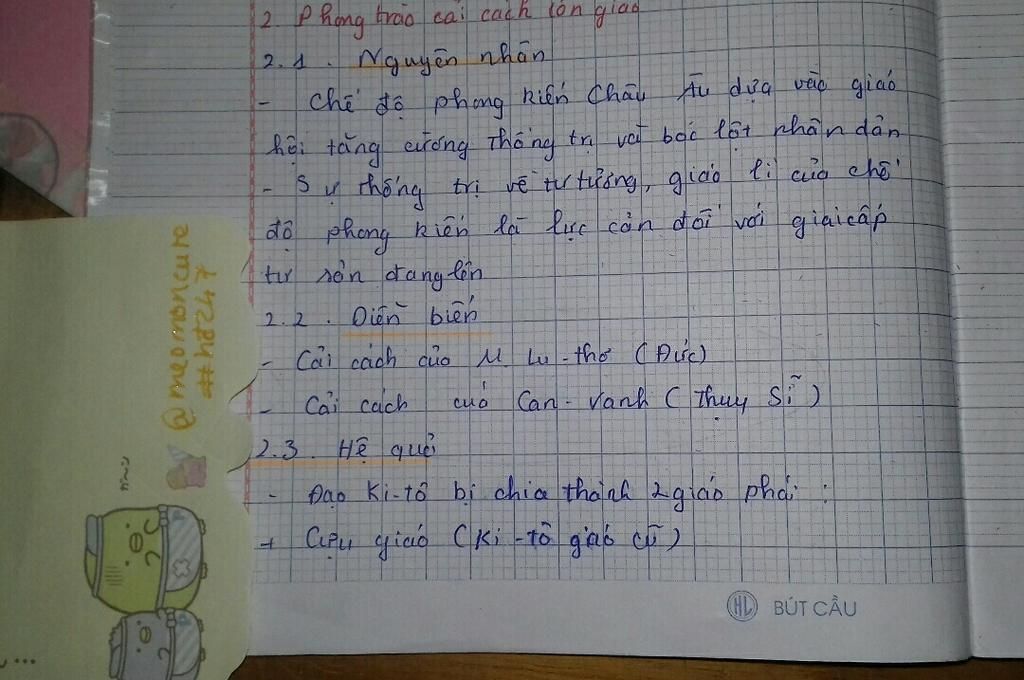 2. Phong trào cải cách tôn giáo
2.1. Nguyên nhân
- Chế độ phong kiến Châu Âu dựa vào giáo
hội tăng cường thống trị và bóc lột nhân dân
- Sự thống trị về tư tưởng, giáo lí của chế
độ phong kiến là lực cản đối với giai cấp
tư sản đang lên
2.2. Diễn biến
- Cải cách của M Lu-thơ (Đức)
- Cải cách của Can-vanh (Thụy Sĩ)
2.3. Hệ quả
- Đạo Ki-tô bị chia thành 2 giáo phái:
+ Cựu giáo (Ki-tô giáo cũ)
HL BÚT CẦU
@meomoncure
#hd247